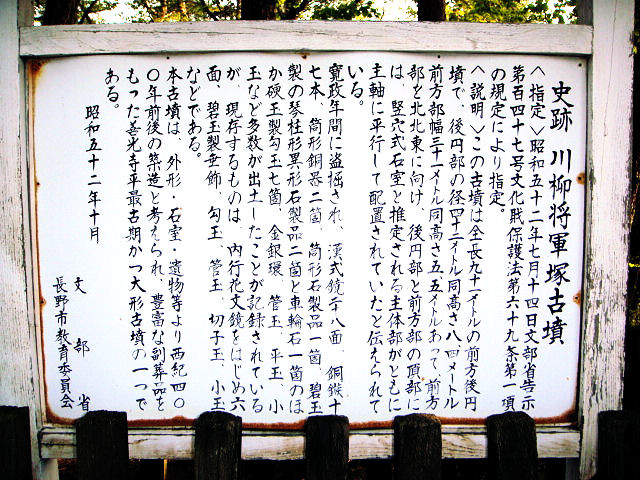 史跡 川柳将軍塚古墳
＜指定＞昭和五十二年七月十四日文部省告示
第百四十七号文化財保護法第六十九条第一項
の規定により指定。
＜説明＞この古墳は全長九十一メートルの前方後円
墳で、後円部の径四十二メートル同高さ八.四メートル
前方部幅三十一メートル同高さ五.五メートルあって、前方
部を北北東に向け、後円部と前方部の頂部に
は、竪穴式石室と推定される主体部がともに
主軸に平行して配置されていたと伝えられて
いる。
寛政年間に盗掘され、漢式鏡二十八面、銅鏃十
七本、筒形銅器二箇、筒形石製品一箇、碧玉
製の琴柱形異形石製品二箇と車輪石一箇のほ
か硬玉製勾玉七箇、金銀環、管玉、平玉、小
玉など多数が出土したことが記録されている
が、現存するものは、内行花文鏡をはじめ六
面、碧玉製垂飾、勾玉、管玉、切子玉、小玉
などである。
本古墳は、外形・石室・遺物等より西紀四〇
〇年前後の築造と考えられ、豊富な副葬品を
もった善光寺平最古期かつ大形古墳の一つで
ある。
昭和五十二年十月
文部省
長野市教育委員会